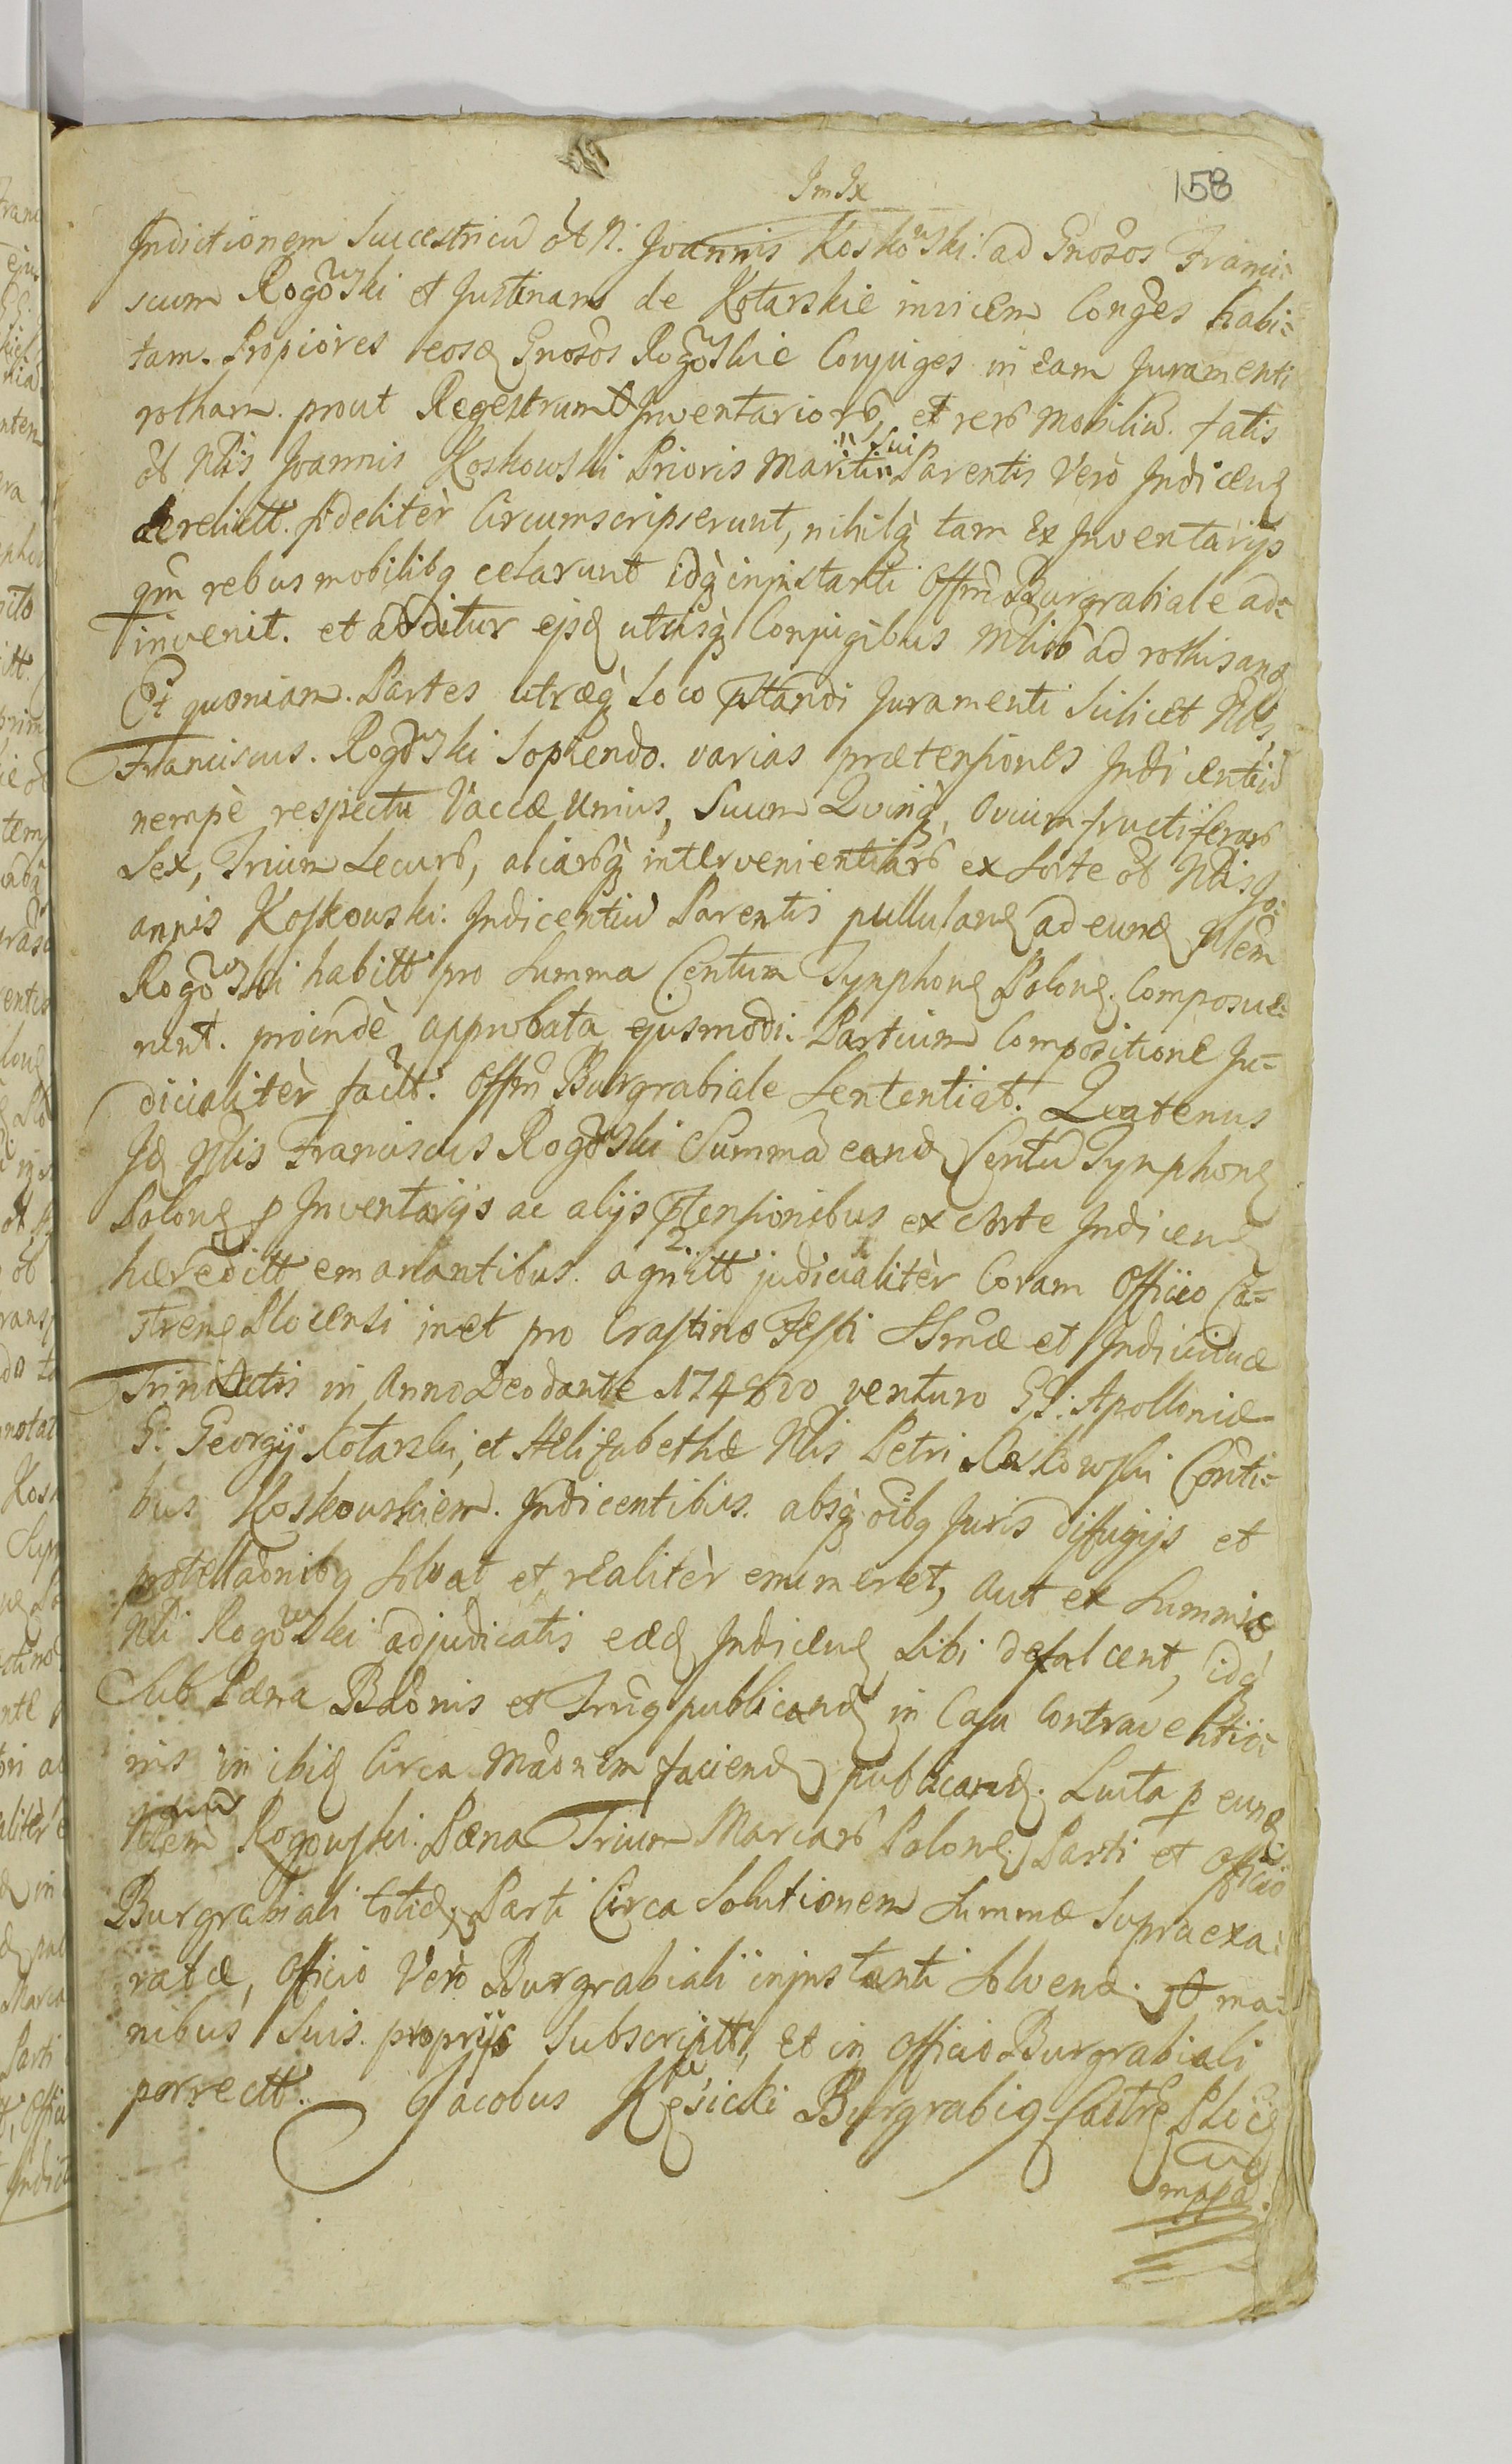 158
Indictionem Successricu ol N. Joannis Koskowski ad Gnosos Franci=
scum Rogowski et Justinam de Kotarskie invicem Conges habi=
tam. Propiores eosd Gnosos Rogowskie Conjuges in eam Juramenti
rotham. prout Regestrum Inventariorb, et rerb mobiliu. fatis
ol Nlis Joannis Koskowski Prioris Mariti sui Parentis Verò Indicen
derelictt. fideliter Circumscripserunt, nihilq tam ex Inventarijs
qm rebus mobilibq celarunt idq in instanti Offm Burgrabiale ad=
invenit. et additur ejsd utrisq Conjugibus Mlis ad rothisand
Et quoniam. Partes utræq loco pstandi Juramenti Scilicet Nlis
Franciscus. Rogowski Sopiendo. varias prætensiones Indicentiu
nempè respectu Vaccæ unius, Suum Quinq, Ovium fructiferarb
Sex, Trium Securb, aliarbq intervenientiarb ex Sorte ol Nlis Jo=
annis Koskowski. Indicentiu Parentis pullulan ad eund Nlem
Rogowski habitt pro Summa Centum Tynphon Polon. Composue=
runt. proindè approbata ejusmodi. Partium Compositione Ju=
dicialitèr factt. Offm Burgrabiale Sententiat. Quatenus
Id Nlis Franciscus Rogowski Summa eand Centu Tynphon
Polon p Inventarijs ac alijs ptensionibus ex Sorte Indicen
hæreditt emanantibus. agnitt judicialitèr Coram Officio Ca=
stren Plocensi in et pro Crastino Festi SSmæ et Individuæ
Trinitatis in Anno Deo dante 1748vo venturo GG: Apolloniæ
G: Georgij Kotarski, et Helisabethæ Nlis Petri Koskowski Conti=
bus Koskowskiem. Indicentibus. absq oibq Juris diffugijs et
protellaonibq Solvat et realitèr enumeret, aut ex Summis
Nli Rogowski adjudicatis eæd Indicen Sibi defalcent, idq
Sub Pæna Baonis et Trnsq publicand in Casu Contraventio=
nis in ibid Circa Maonem faciend publicand. Lucta p eund
Nlem Rogowski. Pæna Trium Marcarb Polon. Parti et Officio
Burgrabiali totid, Parti Circa Solutionem Summæ Supra exa=
ratæ, Officio Verò Burgrabiali in instanti Solvend. Et ma=
nibus Suis. proprijs Subscriptt, et in Officio Burgrabiali
porrectt. Jacobus Kęsicki Burgrabiq Castr Ploc
mppa